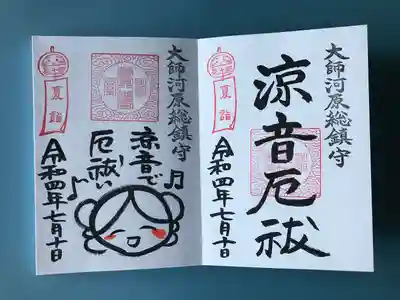 大師河原総鎮守
涼音厄祓
夏詣
令和四年七月十日
大師河原総鎮守
涼音で
厄祓い
夏詣
令和四年七月十日